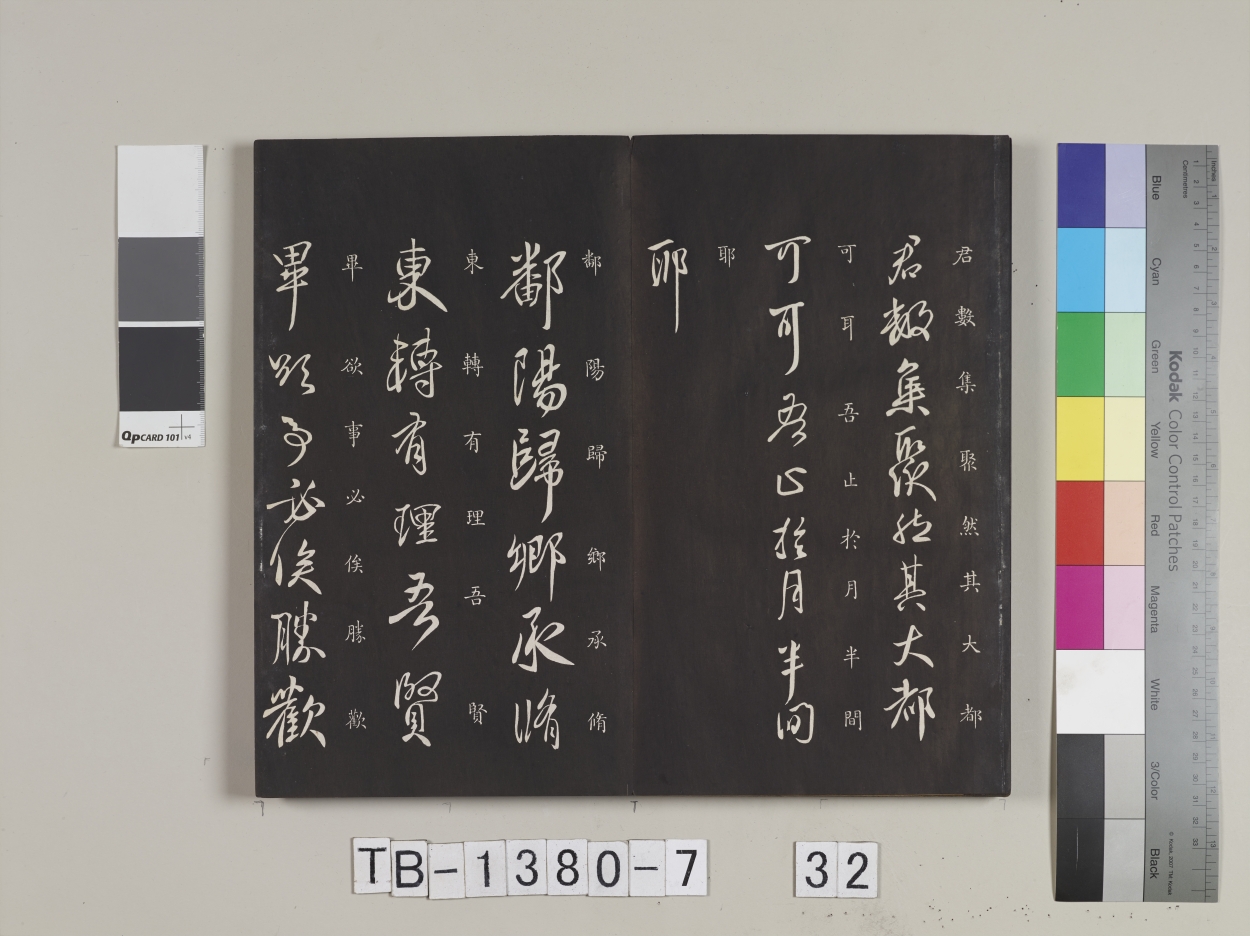 君數集聚然其大都
君數集聚然其大都
可耳吾止於月半間
可可吾止於月半間
耶
耶
鄱陽歸鄉承脩
鄱陽歸鄉承脩
東轉有理吾賢
東轉有理吾賢
畢欲事必俟勝歡
畢欲事必俟勝歡
QPCARD 101 v4
TB-1380-7 32
Kodak Color Control Patches
Blue
Cyan
Green
Yellow
Red
Magenta
White
3/Color
Black
Inches
Centimetres
© Kodak, 2007 TM: Kodak